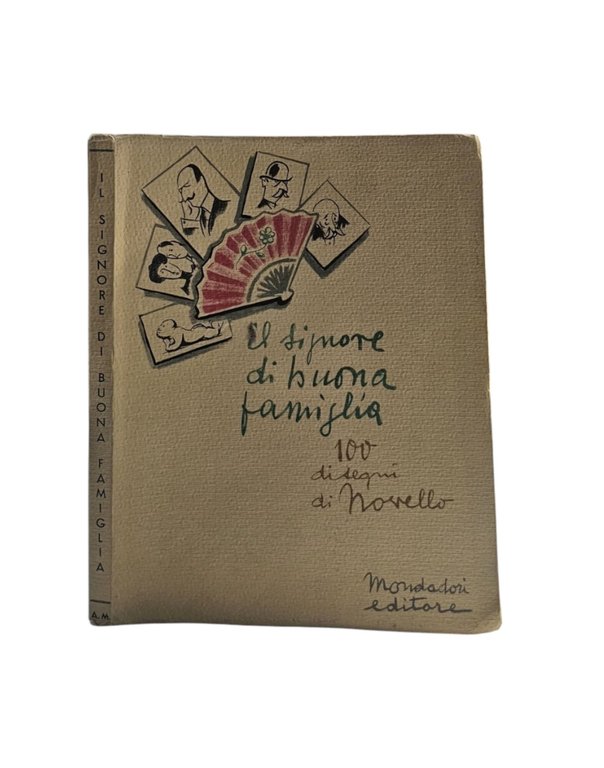 IL SIGNORE DI BUONA FAMIGLIA
A. M.
il signore
di buona
famiglia
100
disegni
di Novello
Mondadori
editore